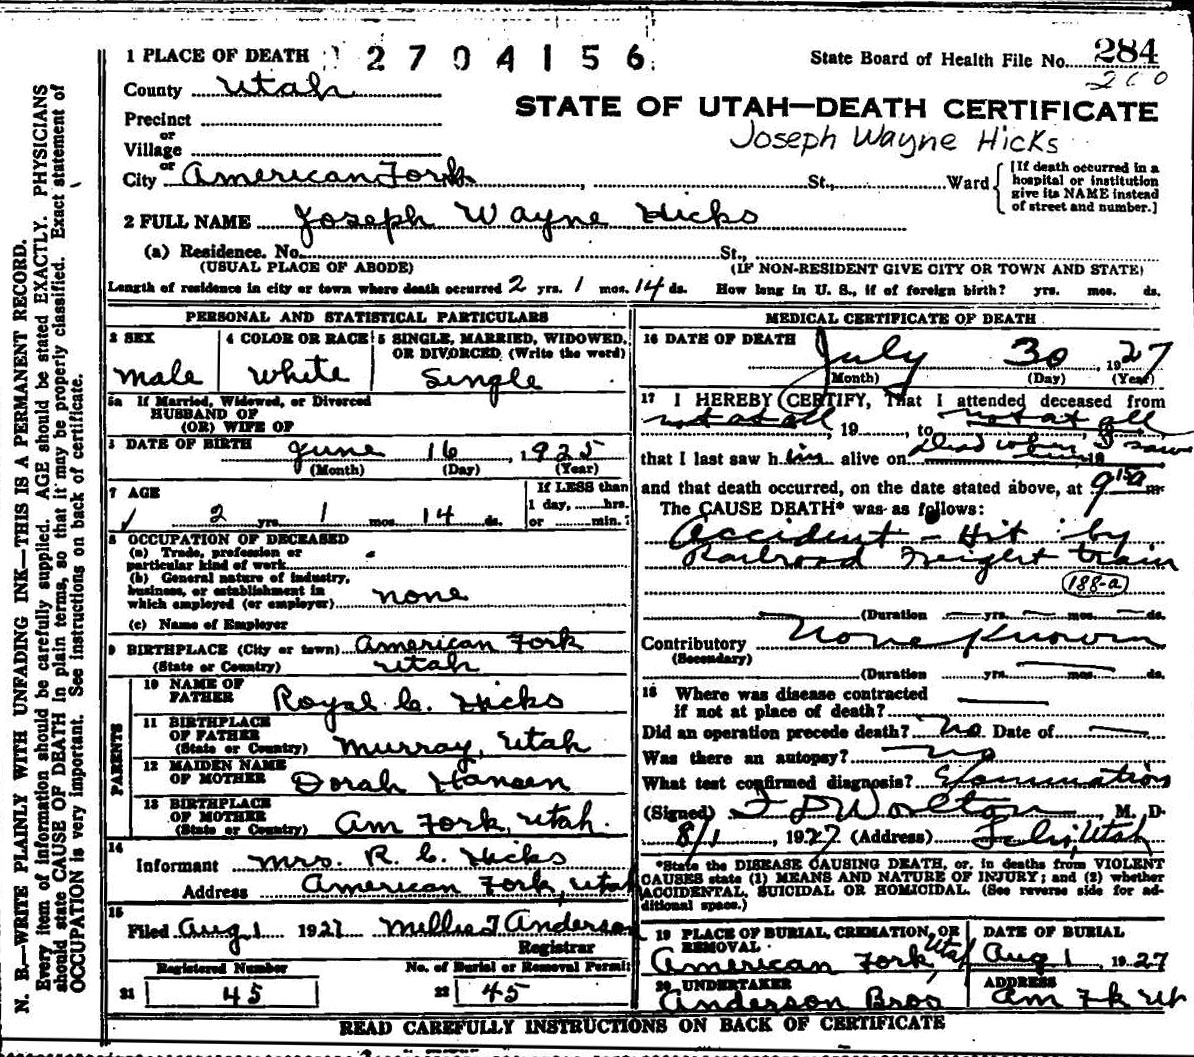 1 PLACE OF DEATH 2704156 State Board of Health File No. 284
260
County Utah
STATE OF UTAH—DEATH CERTIFICATE
Precinct
Joseph Wayne Hicks
or
Village
or
City American Fork, St., Ward
[If death occurred in a
hospital or institution
give its NAME instead
of street and number.]
2 FULL NAME Joseph Wayne Hicks
(a) Residence. No. St.,
(USUAL PLACE OF ABODE) (IF NON-RESIDENT GIVE CITY OR TOWN AND STATE)
Length of residence in city or town where death occurred 2 yrs. 1 mos. 14 ds. How long in U. S., if of foreign birth? yrs. mos. ds.
PERSONAL AND STATISTICAL PARTICULARS
3 SEX 4 COLOR OR RACE 5 SINGLE, MARRIED, WIDOWED,
OR DIVORCED (Write the word)
Male White Single
5a If Married, Widowed, or Divorced
HUSBAND OF
(OR) WIFE OF
DATE OF BIRTH June 16, 1925
(Month) (Day) (Year)
7 AGE If LESS than
1 day, hrs.
2 yrs. 1 mos. 14 ds. or min.?
8 OCCUPATION OF DECEASED
(a) Trade, profession or
particular kind of work
(b) General nature of industry,
business, or establishment in
which employed (or employer) none
(c) Name of Employer
9 BIRTHPLACE (City or town) American Fork
(State or Country) Utah
PARENTS
10 NAME OF
FATHER Royal C. Hicks
11 BIRTHPLACE
OF FATHER
(State or Country) Murray, Utah
12 MAIDEN NAME
OF MOTHER Dorah Hansen
13 BIRTHPLACE
OF MOTHER
(State or Country) Am Fork, Utah.
14
Informant Mrs. R. C. Hicks
Address American Fork, Utah
15
Filed Aug 1 1927 Millie T Anderson
Registrar
Registered Number No. of Burial or Removal Permit
21 45 22 45
MEDICAL CERTIFICATE OF DEATH
16 DATE OF DEATH July 30, 1927
(Month) (Day) (Year)
17 I HEREBY CERTIFY, That I attended deceased from
not at all, 19, to not at all
that I last saw him alive on Dead when I saw him, 19
and that death occurred, on the date stated above, at 9 15 a m
The CAUSE DEATH* was as follows:
Accident - Hit by
Railroad Freight train
188-a
(Duration yrs. mos. ds.
Contributory None Known
(Secondary)
(Duration yrs. mos. ds.
18 Where was disease contracted
if not at place of death?
Did an operation precede death? No Date of
Was there an autopsy? no
What test confirmed diagnosis? Examination
(Signed) M. D.
8/1, 1927 (Address) Lehi, Utah
*State the DISEASE CAUSING DEATH, or, in deaths from VIOLENT
CAUSES state (1) MEANS AND NATURE OF INJURY; and (2) whether
ACCIDENTAL, SUICIDAL OR HOMICIDAL. (See reverse side for ad-
ditional space.)
19 PLACE OF BURIAL, CREMATION, OR
REMOVAL
American Fork Utah
DATE OF BURIAL
Aug 1 1927
20 UNDERTAKER
Anderson Bros
ADDRESS
Am Fk Ut
READ CAREFULLY INSTRUCTIONS ON BACK OF CERTIFICATE
N. B.—WRITE PLAINLY WITH UNFADING INK—THIS IS A PERMANENT RECORD.
Every item of information should be carefully supplied. AGE should be stated EXACTLY. PHYSICIANS
should state CAUSE OF DEATH in plain terms, so that it may be properly classified. Exact statement of
OCCUPATION is very important. See instructions on back of certificate.